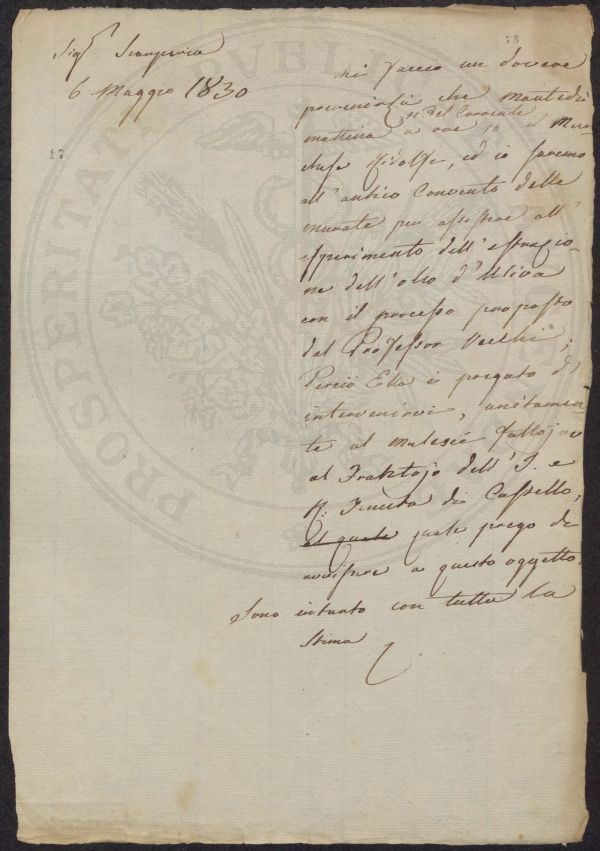 Sig.r
6 Maggio 1830
78
17
Mi faccio un dovere
prevenirla che Martedì
11. del Corrente
mattina a ore 10 il Mar
chese Ridolfi, ed io saremo
all'antico Convento delle
murate per assistere all'
esperimento dell'estrazio
ne dell'olio d'Uliva
con il processo proposto
dal Professor
Perciò Ella è pregato d'
intervenirvi, unitamen
te al fattojo
al dell'I. e
R. Tenuta di Castello,
al quale quale prego di
avvisare a questo oggetto.
Sono intanto con tutta la
stima
PROSPERITATI PUBLICAE